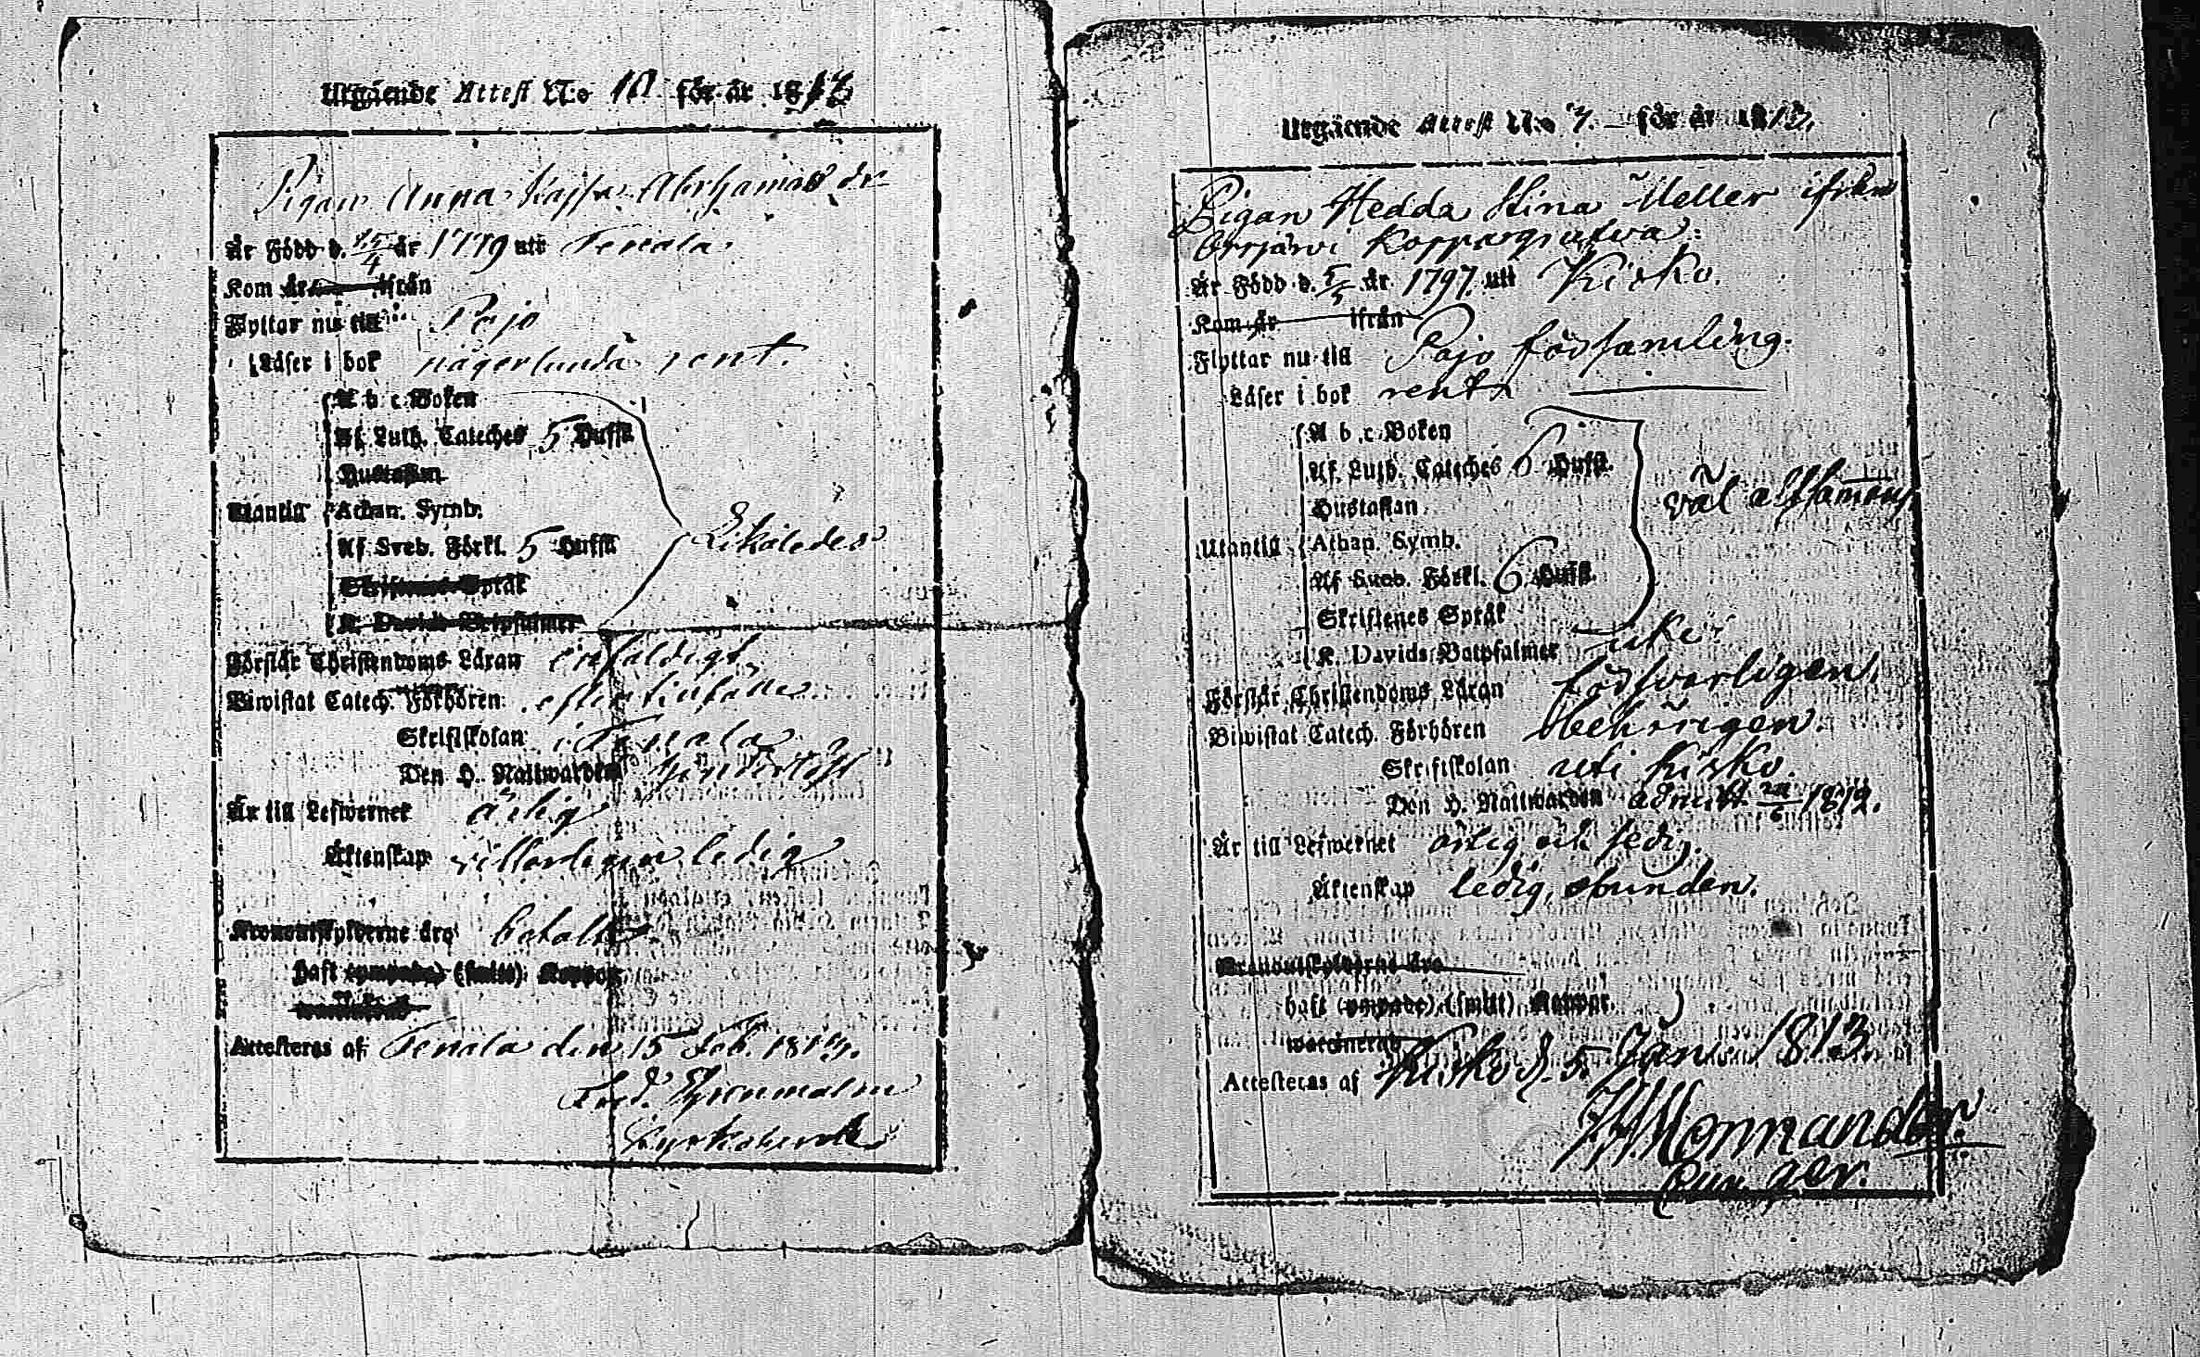 Utgående Attest N:o 10 för år 1813
Pigan Anna Kajsa Abrahamsdr
Är Född d. 15/4 år 1779 uti Tenala.
Kom år ifrån
Flyttar nu till Pojo
Läser i bok någorlunda rent.
A b c Boken
Af Luth. Cateches 5 Hufst.
Hustaflan
Utantill Athan. Symb.
Af Sveb. Förkl. 5 Hufst. Likaledes
Skriftenes Språk
K. Davids Botpsalmer
Förstår Christendoms Läran enfaldigt
Biwistat Catech. Förhören
Skriftskolan i Tenala
Den H. Nattwarden
Är till Lefwernet ärlig
Äktenskap ledig
Kronoutskylderne äro betalte
haft (ympade) (smitt) Koppor
Attesteras af Tenala den 15 Feb. 1813.
Fred.
Kyrkoherde
Utgående Attest N:o 3. för år 1813.
Pigan Hedda Stina Meller ifrån
Orrjärvi Koppargrufwa.
Är Född d. 5/5 år 1797 uti Kisko.
Kom år ifrån
Flyttar nu till Pojo församling.
Läser i bok rent
A b c Boken
Af Luth. Cateches 6 Hufst.
Hustaflan väl alssamans
Utantill Athan. Symb.
Af Sveb. Förkl. 6 Hufst.
Skriftenes Språk
K. Davids Botpsalmer icke
Förstår Christendoms Läran försvarligen.
Biwistat Catech. Förhören behörigen.
Skriftskolan uti Kisko.
Den H. Nattwarden admitt. 1812.
Är till Lefwernet ärlig och sedig.
Äktenskap ledig, obunden.
Kronoutskylderne äro
haft (ympade) (smitt) Koppor.
waccinerad
Attesteras af Kisko d. 5 Jan. 1813.
Mormander.